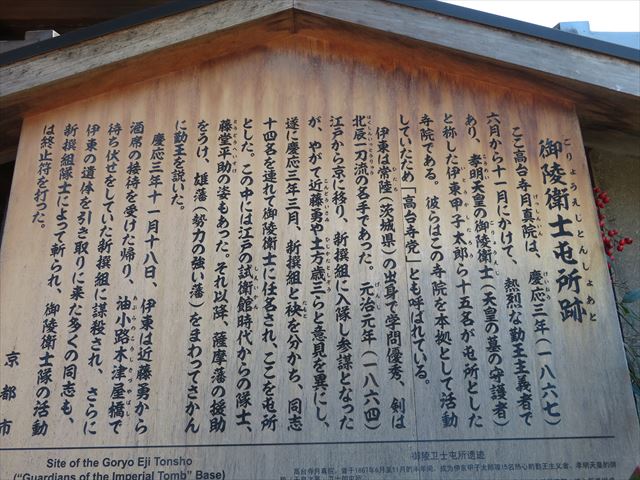 御陵衛士屯所跡
ごりょうえじとんしょあと
ここ高台寺月真院は、慶応三年(一八六七)
六月から十一月にかけて、熱烈な勤王主義者で
あり、孝明天皇の御陵衛士(天皇の墓の守護者)
と称した伊東甲子太郎ら十五名が屯所とした
寺院である。彼らはこの寺院を本拠として活動
していたため「高台寺党」とも呼ばれている。
伊東は常陸(茨城県)の出身で学問優秀、剣は
北辰一刀流の名手であった。元治元年(一八六四)
江戸から京に移り、新撰組に入隊し参謀となった
が、やがて近藤勇や土方歳三らと意見を異にし、
遂に慶応三年三月、新撰組と袂を分かち、同志
十四名を連れて御陵衛士に任名され、ここを屯所
とした。この中には江戸の試衛館時代からの隊士、
藤堂平助の姿もあった。それ以降、薩摩藩の援助
をうけ、雄藩(勢力の強い藩)をまわってさかん
に勤王を説いた。
慶応三年十一月十八日、伊東は近藤勇から
酒席の接待を受けた帰り、油小路木津屋橋で
待ち伏せをしていた新撰組に謀殺され、さらに
伊東の遺体を引き取りに来た多くの同志も、
新撰組隊士によって斬られ、御陵衛士隊の活動
は終止符を打った。
京都市
Site of the Goryo Eji Tonsho
("Guardians of the Imperial Tomb" Base)
御陵卫士屯所遗迹